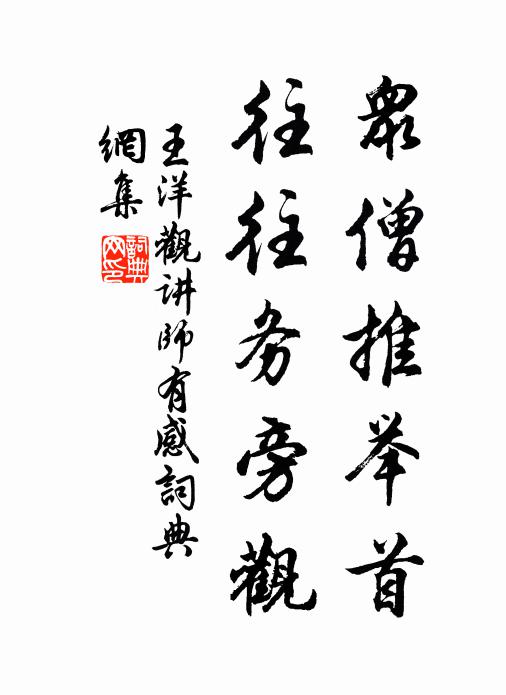 眾僧推举首
往往务旁觀
王洋觀讲師有感詞典
網集
詞典网印